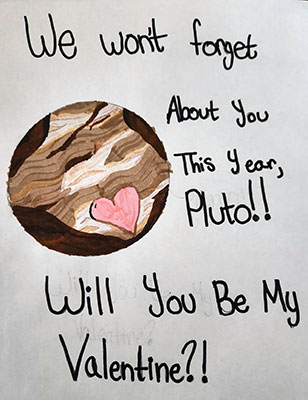 We won't forget
About You
This Year,
Pluto!!
Will You Be My
Valentine?!